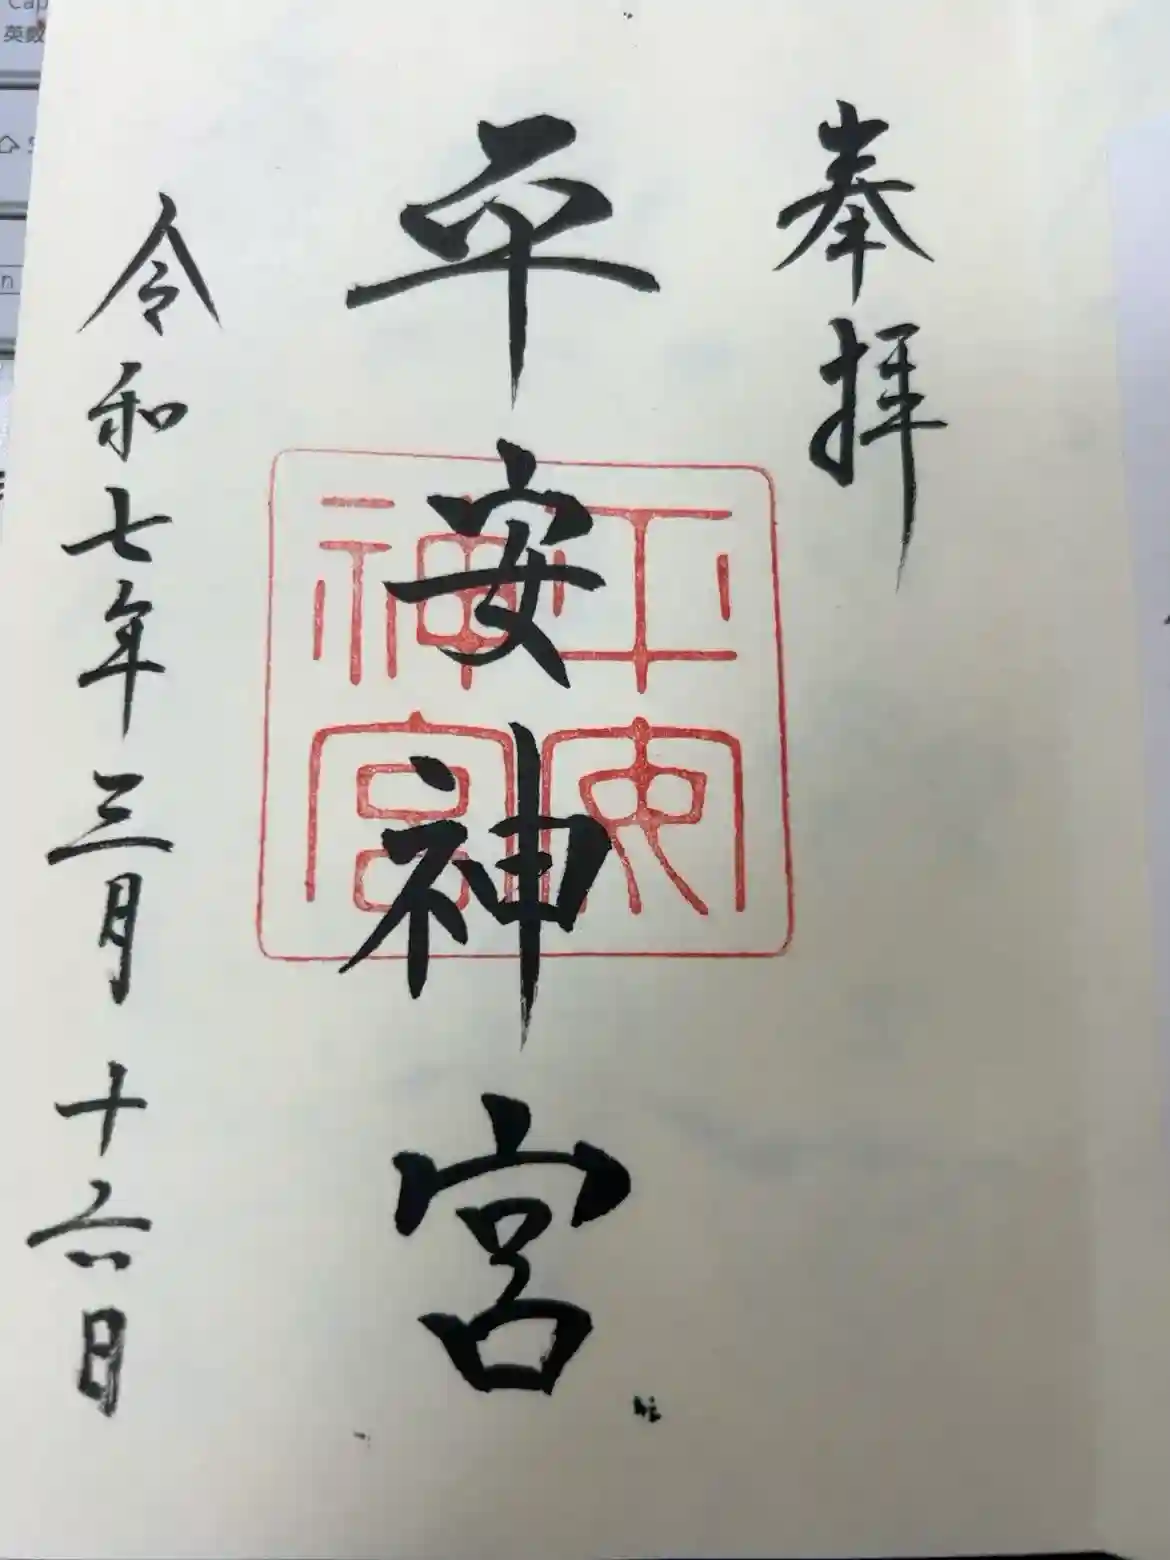 奉拝
平安神宮
平安神宮
令和七年三月十六日
Cap
英数
n